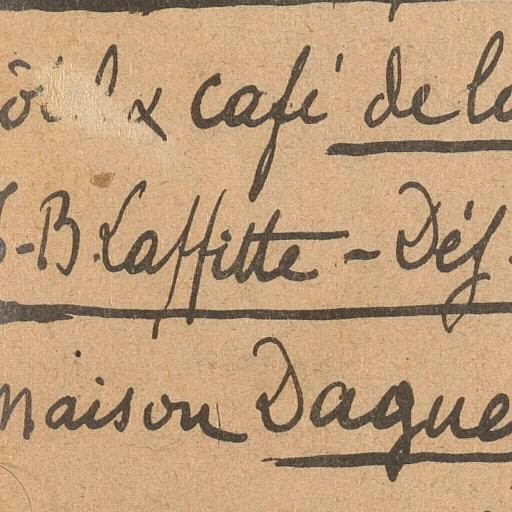 & café de la
J-B. Laffitte - Déf
maison Dague